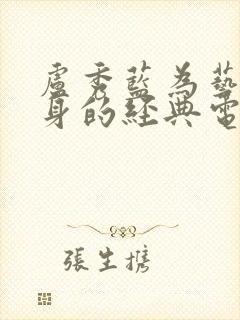 盧秀藍為藝
身的經典電
張生攜